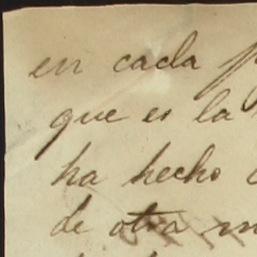 en cada
que es la
ha hecho
de otra